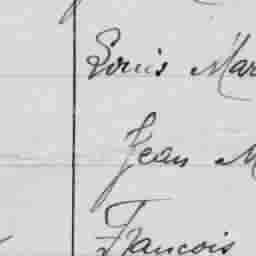 Louis Mar
Jean M
Francois